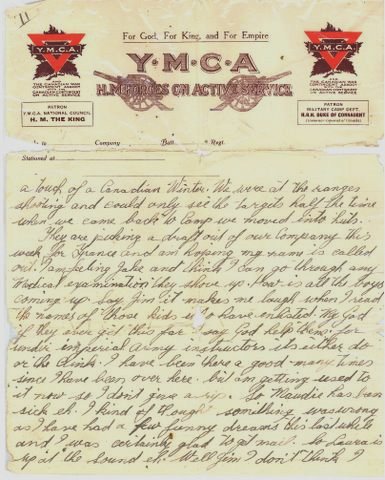 11
For God, For King, and For Empire
Y.M.C.A
Y·M·C·A
Y.M.C.A
H.M. FORCES ON ACTIVE SERVICE
PATRON
Y.M.C.A. NATIONAL COUNCIL
H. M. THE KING
PATRON
MILITARY CAMP DEPT.
H.R.H. DUKE OF CONNAUGHT
to Company Batt. Regt.
Stationed at
a touch of a Canadian Winter. We were at the ranges
shooting and could only see the targets half the time
when we came back to camp we moved into huts.
They are picking a draft out of our Company this
week for France and am hoping my name is called
out. I am feeling Jake and think I can go through any
medical examination they shove up. How is all the boys
coming up. Say Jim it makes me laugh when I read
the names of those kids who have enlisted. My God
if they ever get this far I say God help them. for
under imperial Army instructors its either do
or the clink. I have been there a good many times
since I have been over here. but am getting used to
it now so I don't give a rip. So Maudie has been
sick eh. I kind of thought something was wrong
as I have had a few funny dreams this last while
and I was certainly glad to get mail. So Laura is
up at the sound eh. Well Jim I don't think I